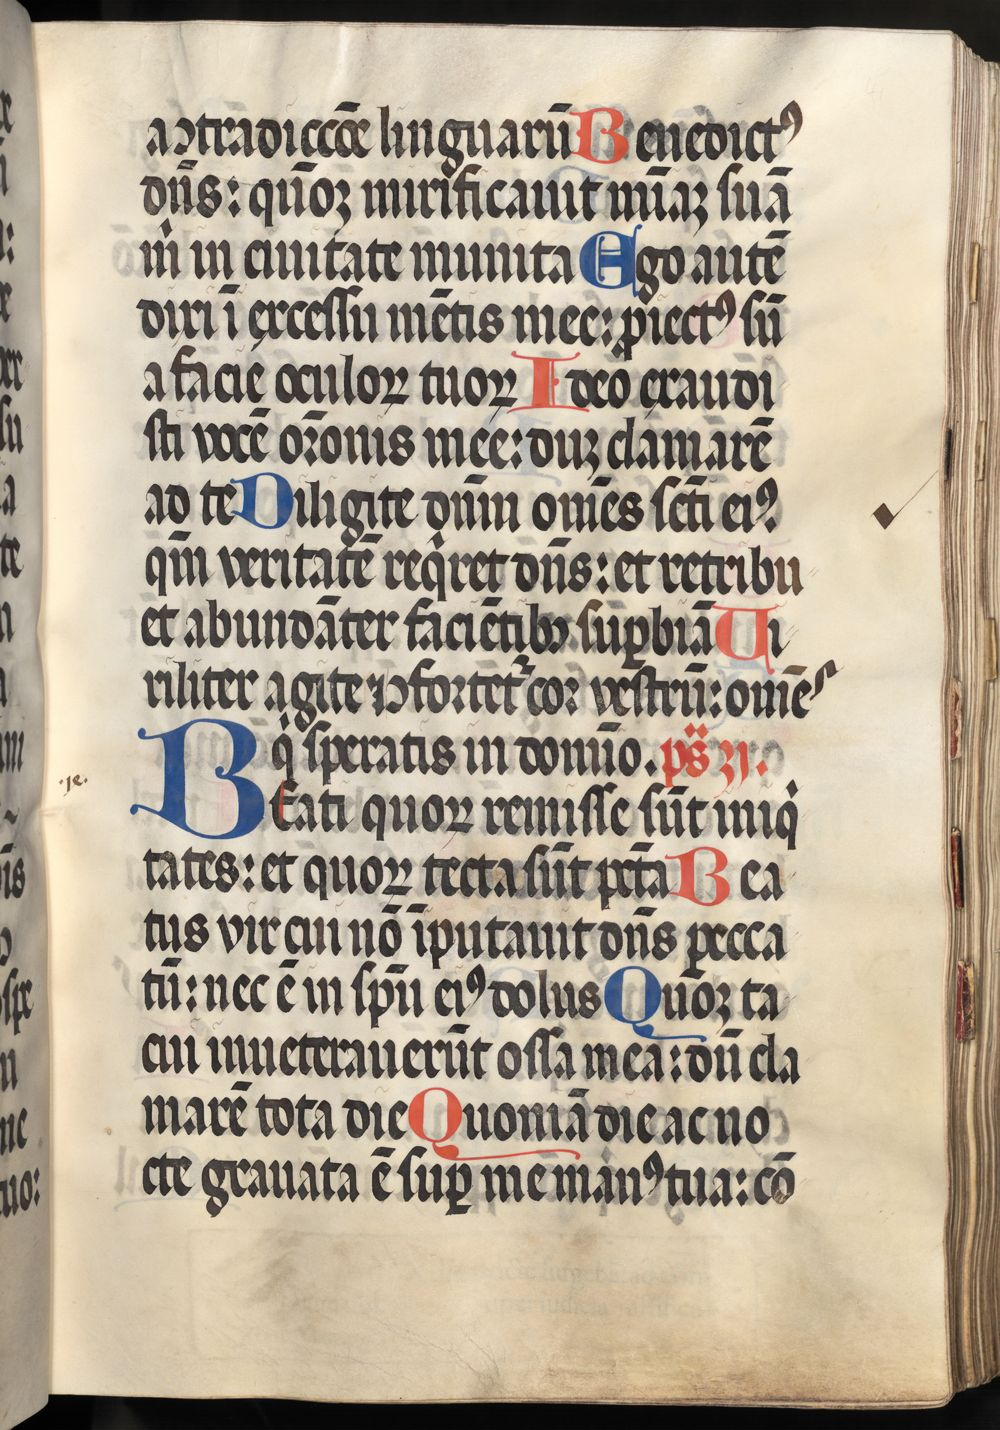 a ꝯtradiccōe linguarū Benedictꝰ
dn̄s: qūoꝫ mirificauit mīaꝫ suā
m̄ in ciuitate munita Ego autē
dixi ī excessu mētis mee: ꝓiectꝰ sū
a facie oculoꝝ tuoꝝ Ideo exaudi
sti vocē or̄onis mee: duꝫ clamarē
ad te Diligite dn̄m om̄es scti eiꝰ
qm̄ veritatē reqͥret dn̄s: et retribu
et abundāter faciētibꝫ suꝑbiā Ui
riliter agite ⁊ ꝯfortetᷣ cor vestrū: om̄es
qͥ speratis in domīo. ps̄ xxxj.
Beati quoꝝ remisse sūt iniqͥ
tates: et quoꝝ tecta sūt pctā Bea
tus vir cui nō īputauit dn̄s pecca
tū: nec ē in spū eiꝰ dolus Quoꝫ ta
cui inueterauerūt ossa mea: dū cla
marē tota die Quoniā die ac no
cte grauata ē suꝑ me manꝰ tua: cō